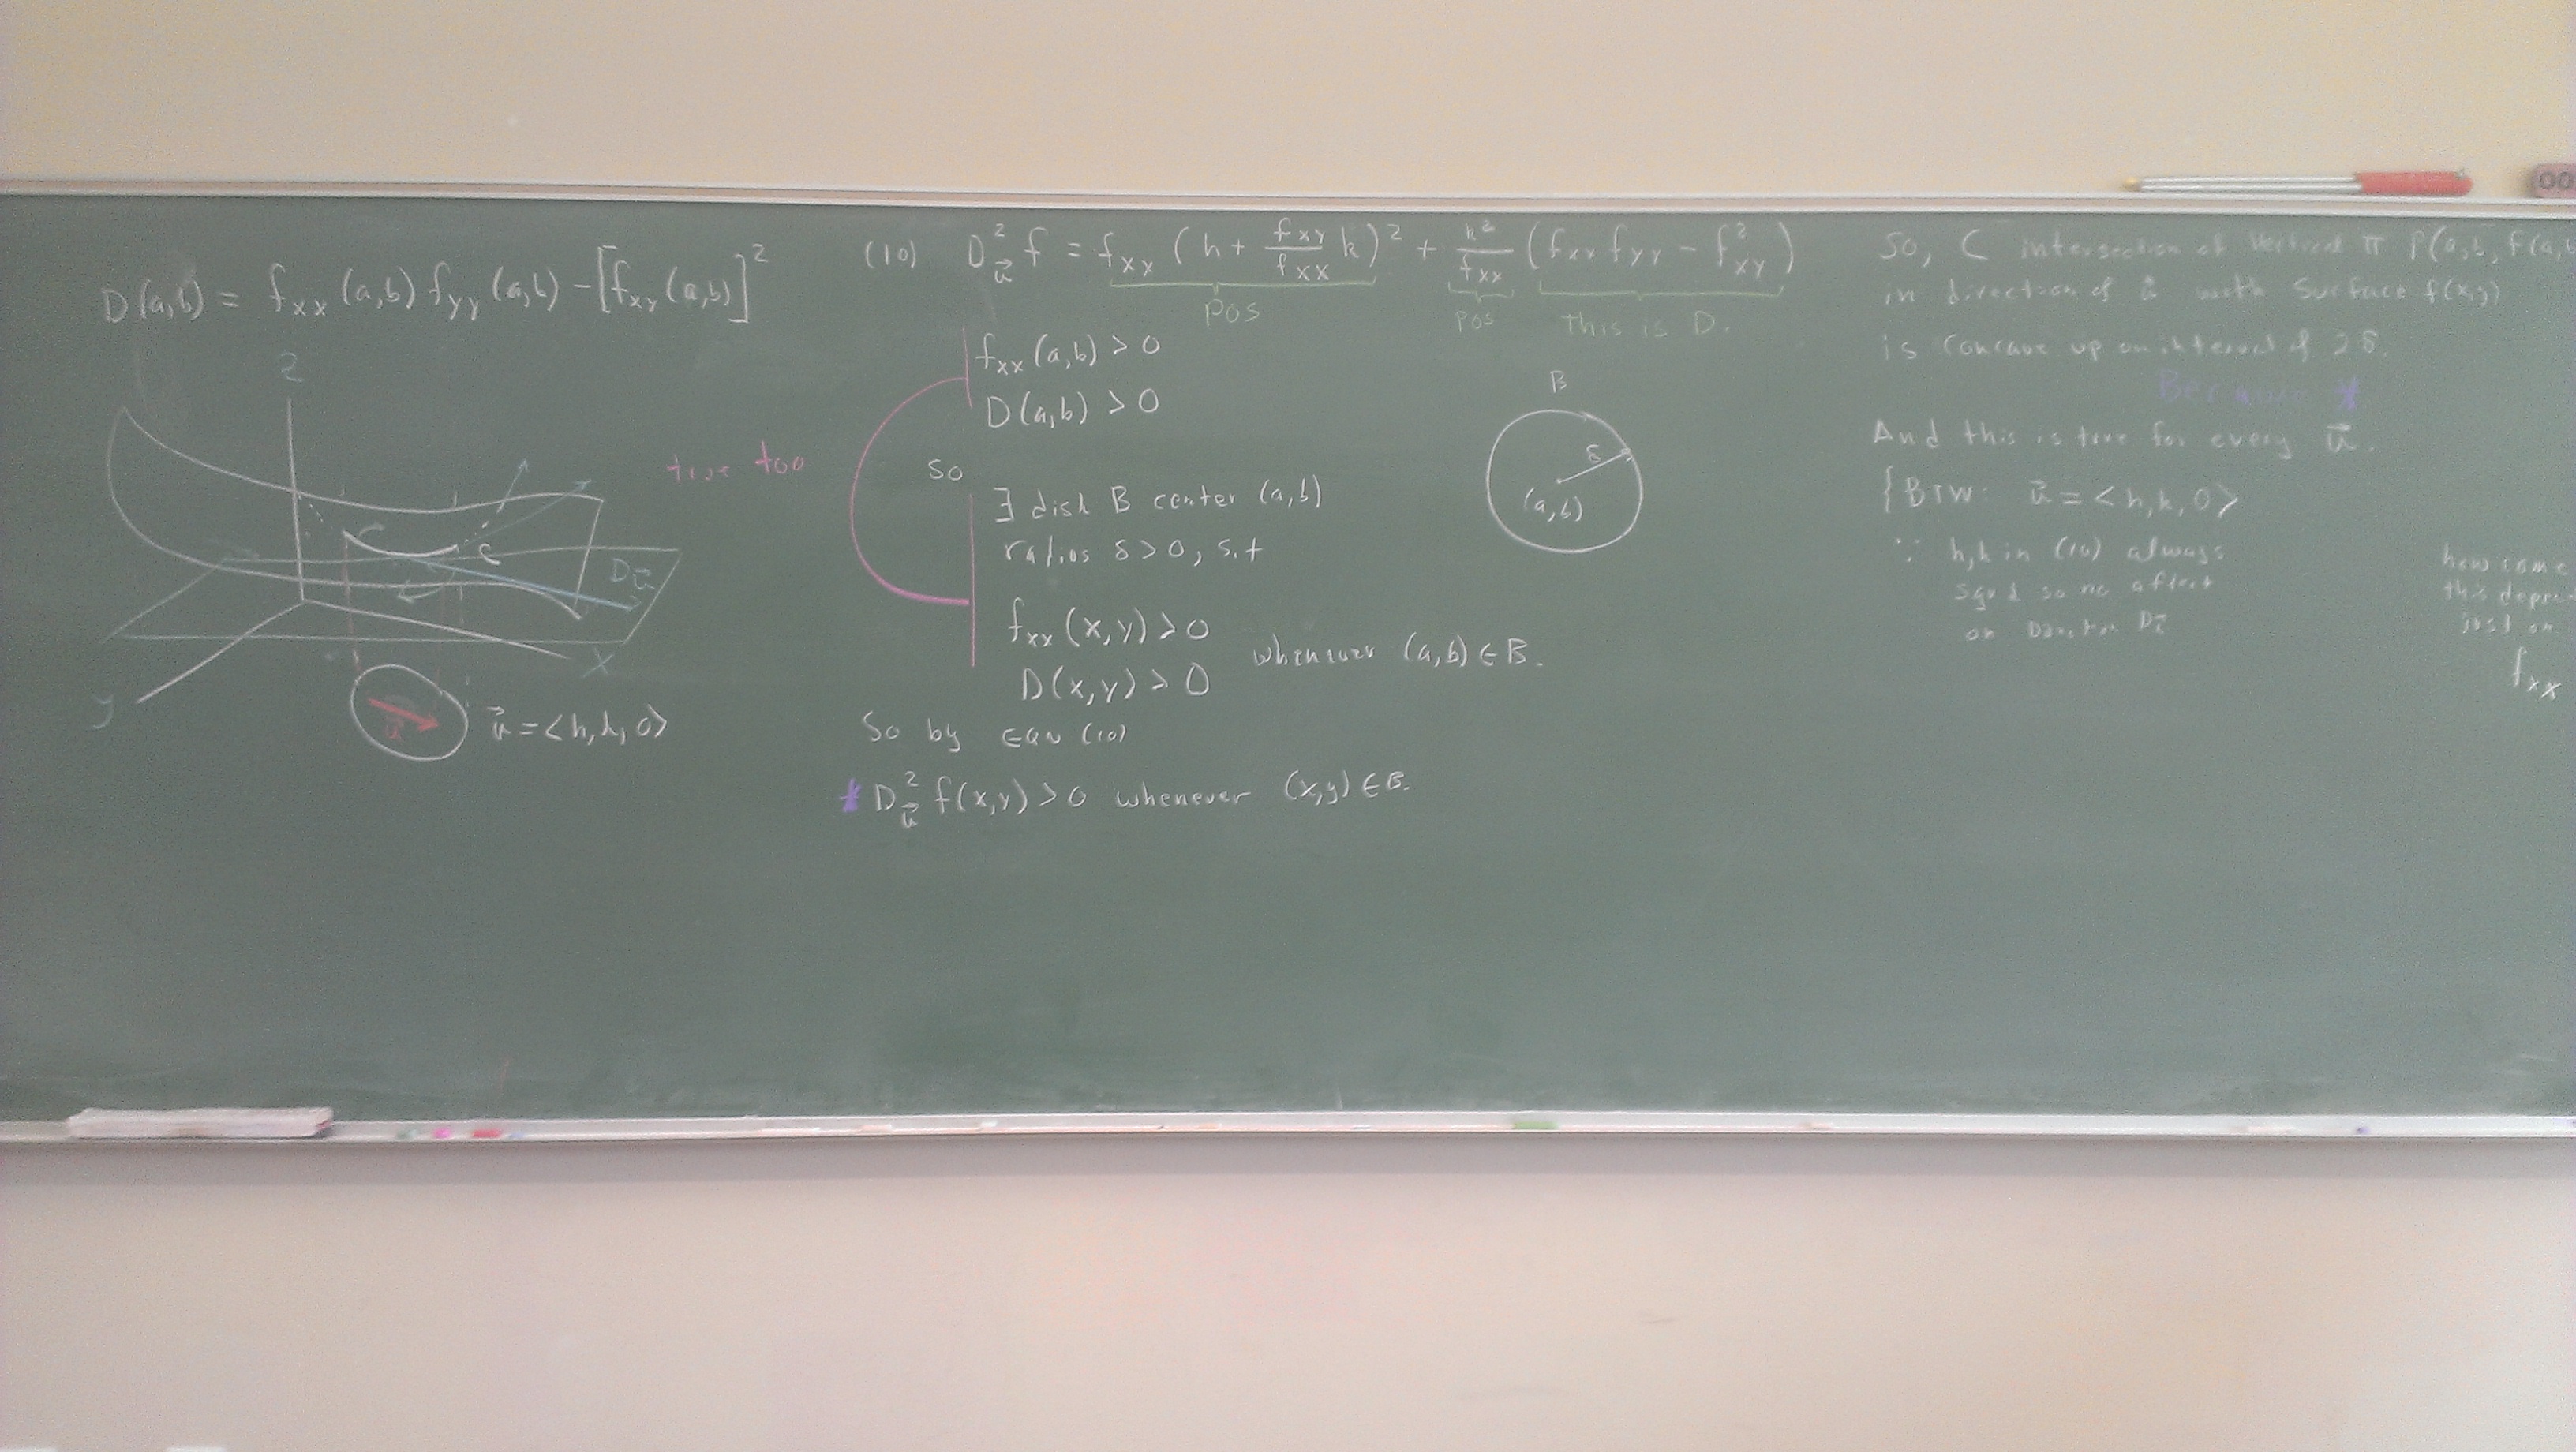 D(a,b) = f_xx (a,b) f_yy (a,b) - [f_xy (a,b)]^2
z
C
C
D_u⃗
x
y
u⃗
u⃗ = <h, k, 0>
true too
(10) D_u⃗^2 f = f_xx (h + f_xy/f_xx k)^2 + k^2/f_xx (f_xx f_yy - f_xy^2)
pos
pos
this is D.
f_xx (a,b) > 0
D(a,b) > 0
so
∃ disk B center (a,b)
radios δ > 0, s.t
f_xx (x,y) > 0
D(x,y) > 0
whenever (a,b) ∈ B.
So by EQN (10)
* D_u⃗^2 f(x,y) > 0 whenever (x,y) ∈ B.
B
δ
(a,b)
So, C intersection of vertical π P(a,b, f(a,b
in direction of u⃗ with surface f(x,y)
is concave up on interval of 2δ.
Because *
And this is true for every u⃗.
{BTW: u⃗ = <h, k, 0>
∵ h,k in (10) always
sqrd so no affect
on D_u⃗
how come
this depen
just on
f_xx